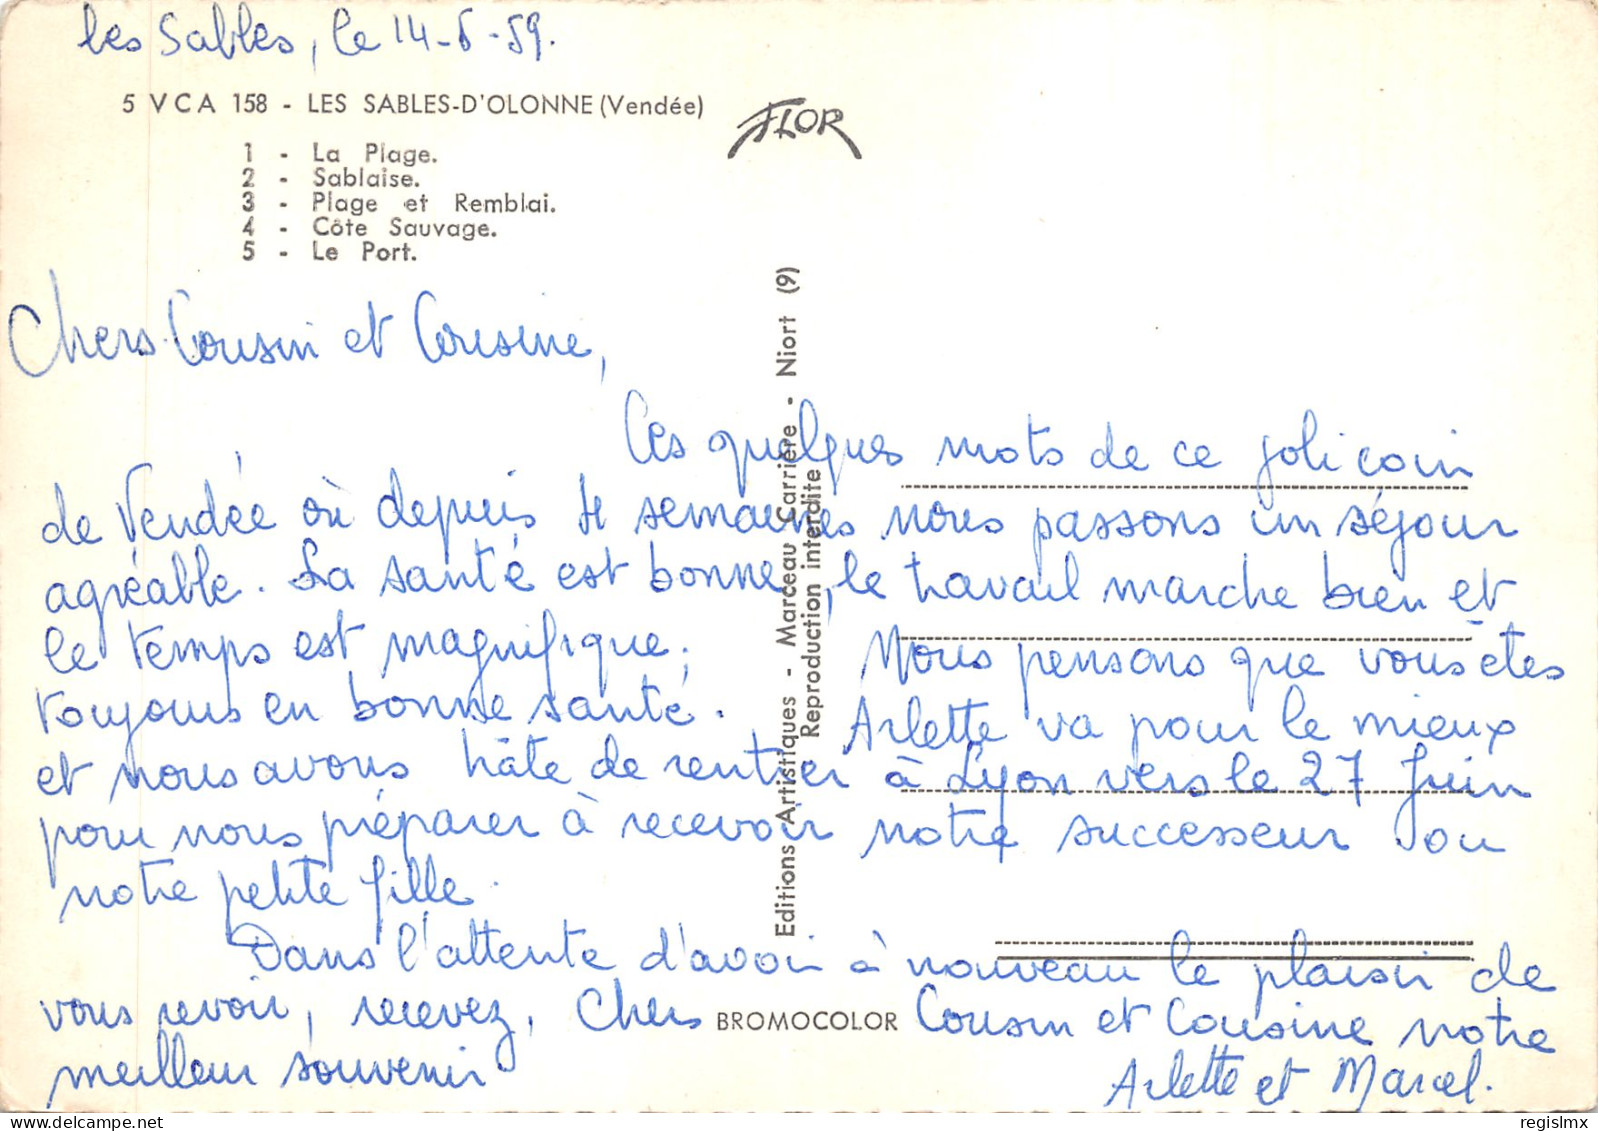 les Sables, le 14-6-59.
5 VCA 158 - LES SABLES-D'OLONNE (Vendée)
FLOR
1 - La Plage.
2 - Sablaise.
3 - Plage et Remblai.
4 - Côte Sauvage.
5 - Le Port.
Editions Artistiques - Marceau Carrière - Niort (9)
Reproduction interdite
Chers Cousin et Cousine,
Ces quelques mots de ce joli coin
de Vendée où depuis 4 semaines nous passons un séjour
agréable. La santé est bonne, le travail marche bien et
le temps est magnifique. Nous pensons que vous êtes
toujours en bonne santé. Arlette va pour le mieux
et nous avons hâte de rentrer à Lyon vers le 27 Juin
pour nous préparer à recevoir notre successeur ou
notre petite fille.
Dans l'attente d'avoir à nouveau le plaisir de
vous revoir, recevez, Chers Cousin et Cousine notre
BROMOCOLOR
meilleur souvenir
Arlette et Marcel.
regislmx